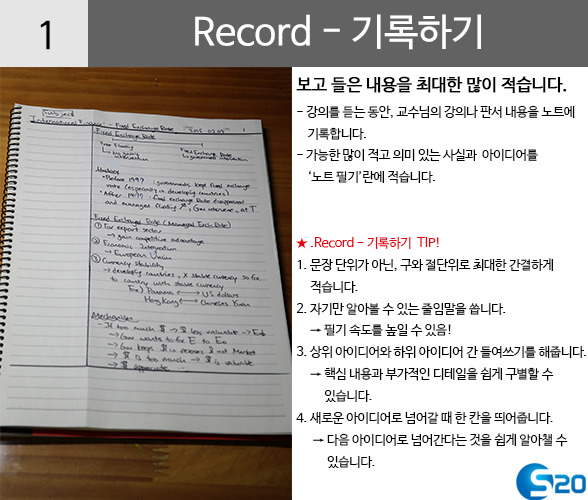 1
Record - 기록하기
보고 들은 내용을 최대한 많이 적습니다.
- 강의를 듣는 동안, 교수님의 강의나 판서 내용을 노트에
기록합니다.
- 가능한 많이 적고 의미 있는 사실과 아이디어를
‘노트 필기’란에 적습니다.
★ .Record - 기록하기 TIP!
1. 문장 단위가 아닌, 구와 절단위로 최대한 간결하게
적습니다.
2. 자기만 알아볼 수 있는 줄임말을 씁니다.
→ 필기 속도를 높일 수 있음!
3. 상위 아이디어와 하위 아이디어 간 들여쓰기를 해줍니다.
→ 핵심 내용과 부가적인 디테일을 쉽게 구별할 수
있습니다.
4. 새로운 아이디어로 넘어갈 때 한 칸을 띄어줍니다.
→ 다음 아이디어로 넘어간다는 것을 쉽게 알아챌 수
있습니다.
S20
Subject
International Finance - Fixed Exchange Rate
Fixed Exchange Rate
Free Floating
Fixed Exchange Rate
government intervention
governments kept fixed exchange
rate (especially in developing countries)
fixed exchange Rate disappeared
and managed floating
Fixed Exchange Rate
① For export sector
→ gain competitive advantage
② Economic Integration
→ European Union
③ Currency stability
→ developing countries, X stable currency so fix
to country with stable currency
Ex) Panama ↔ US dollars
Hong Kong ↔ Chinese Yuan
Mechanism
- If too much $ → $ less valuable →
→ Gov wants to fix E to E₀
→ Gov keeps $ in reserves
→ $ is too much → $ is valuable
→ $ appreciate